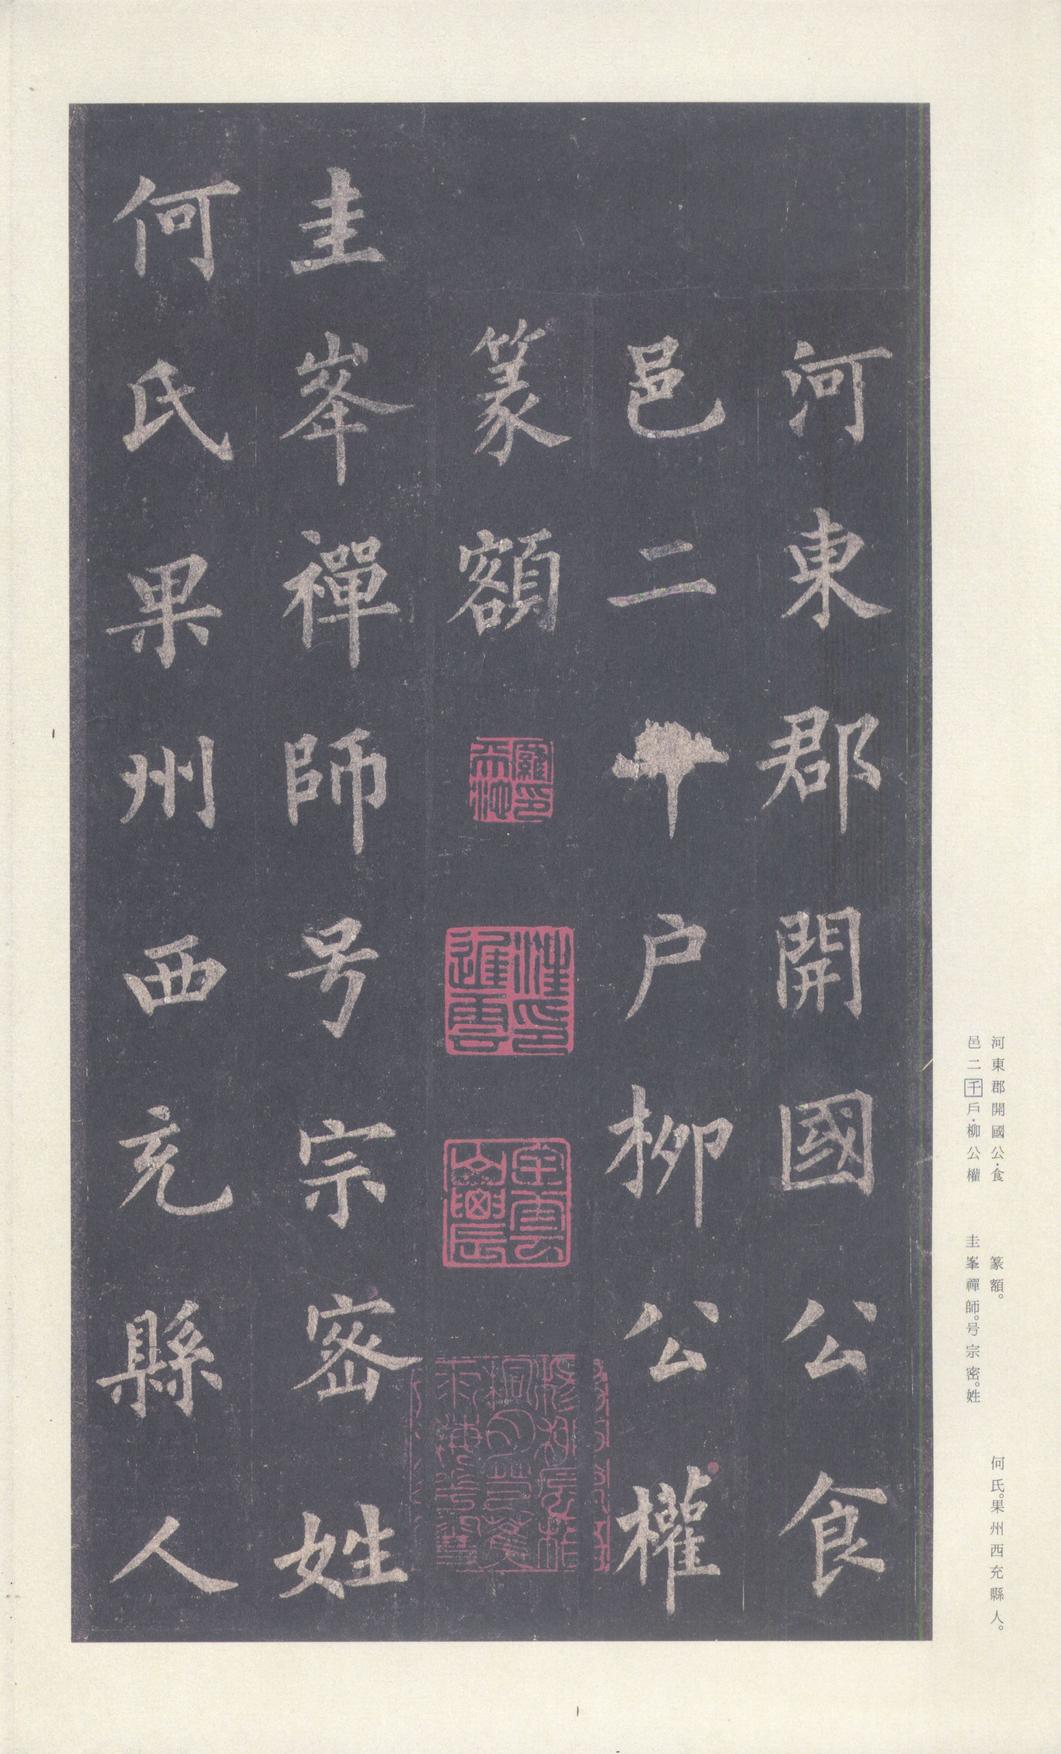 河東郡開國公食
邑二千戶柳公權
篆額
圭峯禪師号宗密姓
何氏果州西充縣人
河東郡開國公·食
邑二千戶·柳公權
篆額。
圭峯禪師。号宗密。姓
何氏。果州西充縣人。